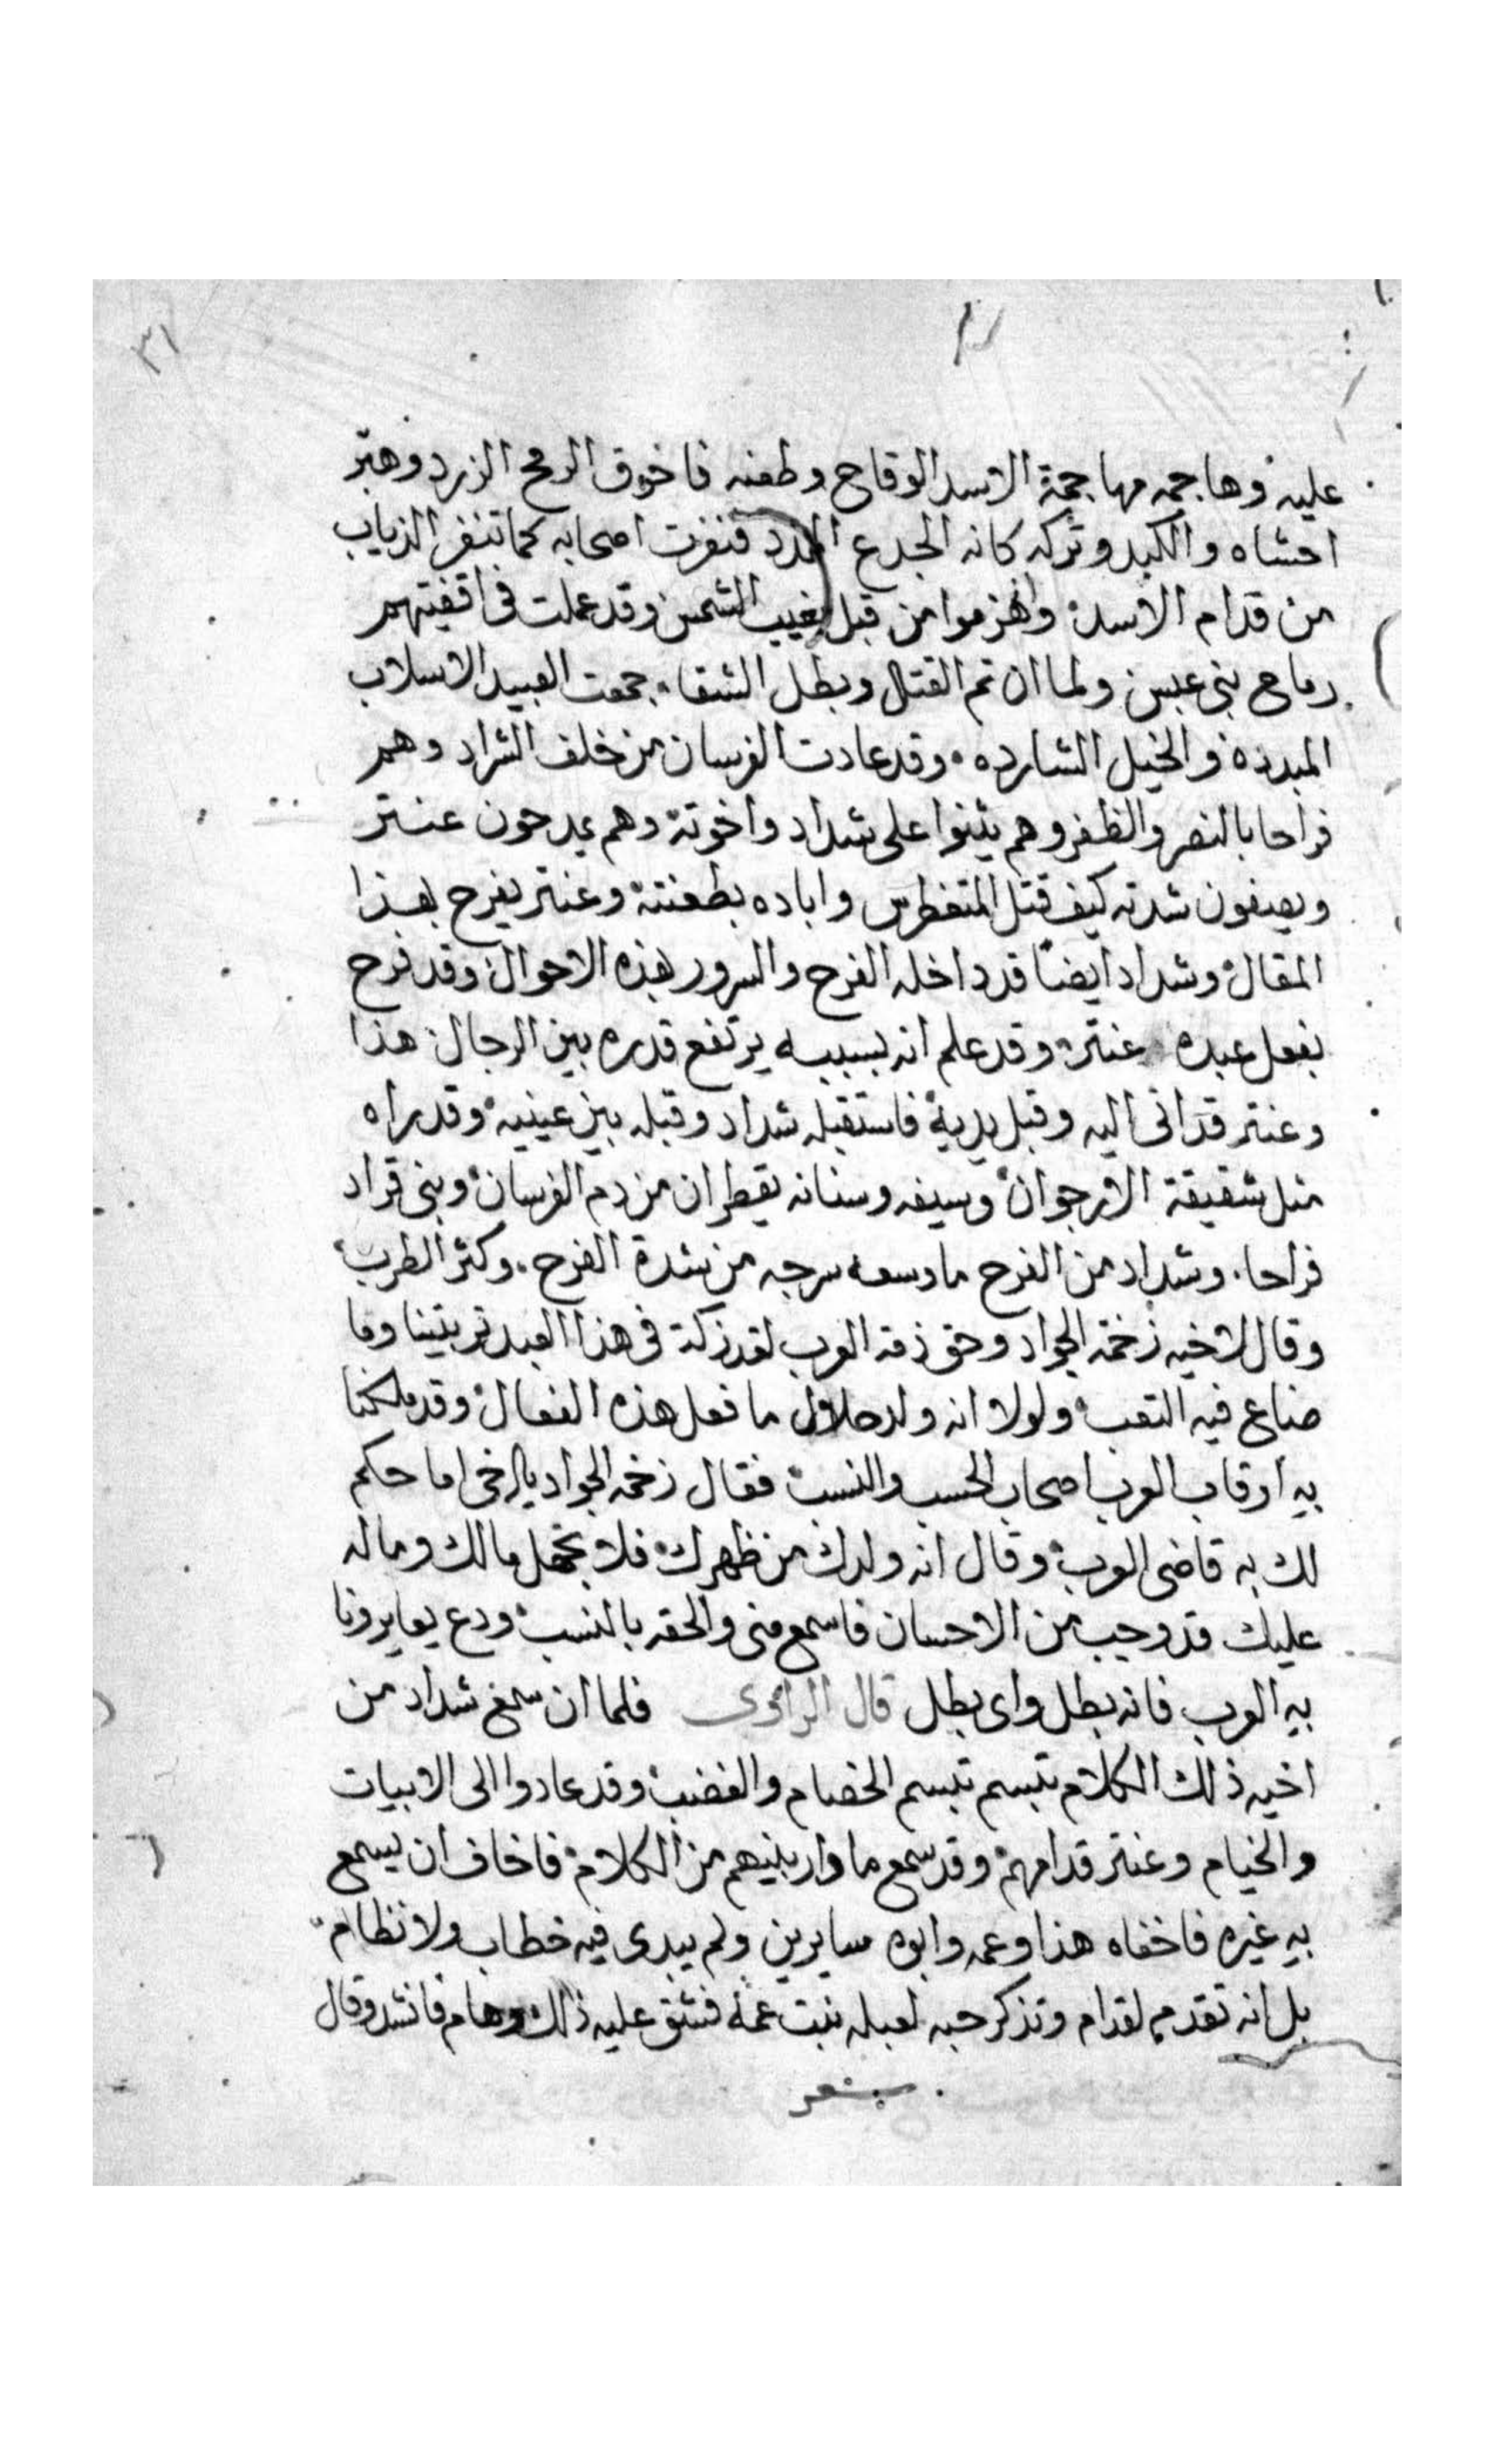 ٣١
عليه وهاجمه مهاجمة الاسد الوقاح وطعنه فاخرق الرمح الزرد وهبر
احشاه والكبد وتركه كانه الجدع الممدد فنفرت اصحابه كما تنفر الذياب
من قدام الاسد وانهزموا من قبل يغيب الشمس وقد عملت فى اقفيتهم
رماح بنى عبس ولما ان تم القتال وبطل الشقا جمعت العبيد الاسلاب
المبدده والخيل الشارده وقد عادت الفرسان من خلف الشراد وهم
فراحا بالنصر والظفر وهم يثنوا على شداد واخوته وهم يمدحون عنتر
ويصفون شدته كيف قتل المتغطرس واباده بطعنته وعنتر يفرح بهذا
المقال وشداد ايضا قد داخله الفرح والسرور بهذه الاحوال وقد فرح
بفعل عبده عنتر وقد علم انه بسببه يرتفع قدره بين الرجال هذا
وعنتر قد اتى اليه وقبل يديه فاستقبله شداد وقبله بين عينيه وقد راه
مثل شقيقة الارجوان وسيفه وسنانه يقطران من دم الفرسان وبنى قراد
فراحا وشداد من الفرح ما وسعه سرجه من شدة الفرح وكثر الطرب
وقال لاخيه زخمة الجواد وحق ذمة العرب لقد زكة فى هذا العبد تربيتنا وما
ضاع فيه التعب ولولا انه ولد حلال ما فعل هذه الفعال وقد ملكنا
به ارقاب العرب اصحاب الحسب والنسب فقال زخمه الجواد يا اخى اما حكم
لك به قاضى العرب وقال انه ولدك من ظهرك فلا تجهل مالك وماله
عليك قد وجب من الاحسان فاسمع منى والحقه بالنسب ودع يعايرونا
به العرب فانه بطل واى بطل قال الراوى فلما ان سمع شداد من
اخيه ذلك الكلام تبسم تبسم الخصام والغضب وقد عادوا الى الابيات
والخيام وعنتر قدامهم وقد سمع ما دار بينهم من الكلام فاخاف ان يسمع
به غيره فاخفاه هذا وعمه وابوه سايرين ولم يبدى فيه خطاب ولا نظام
بل انه تقدم لقدام وتذكر حبه لعبله بنت عمه فشق عليه ذلك وهام فانشد وقال
شعر